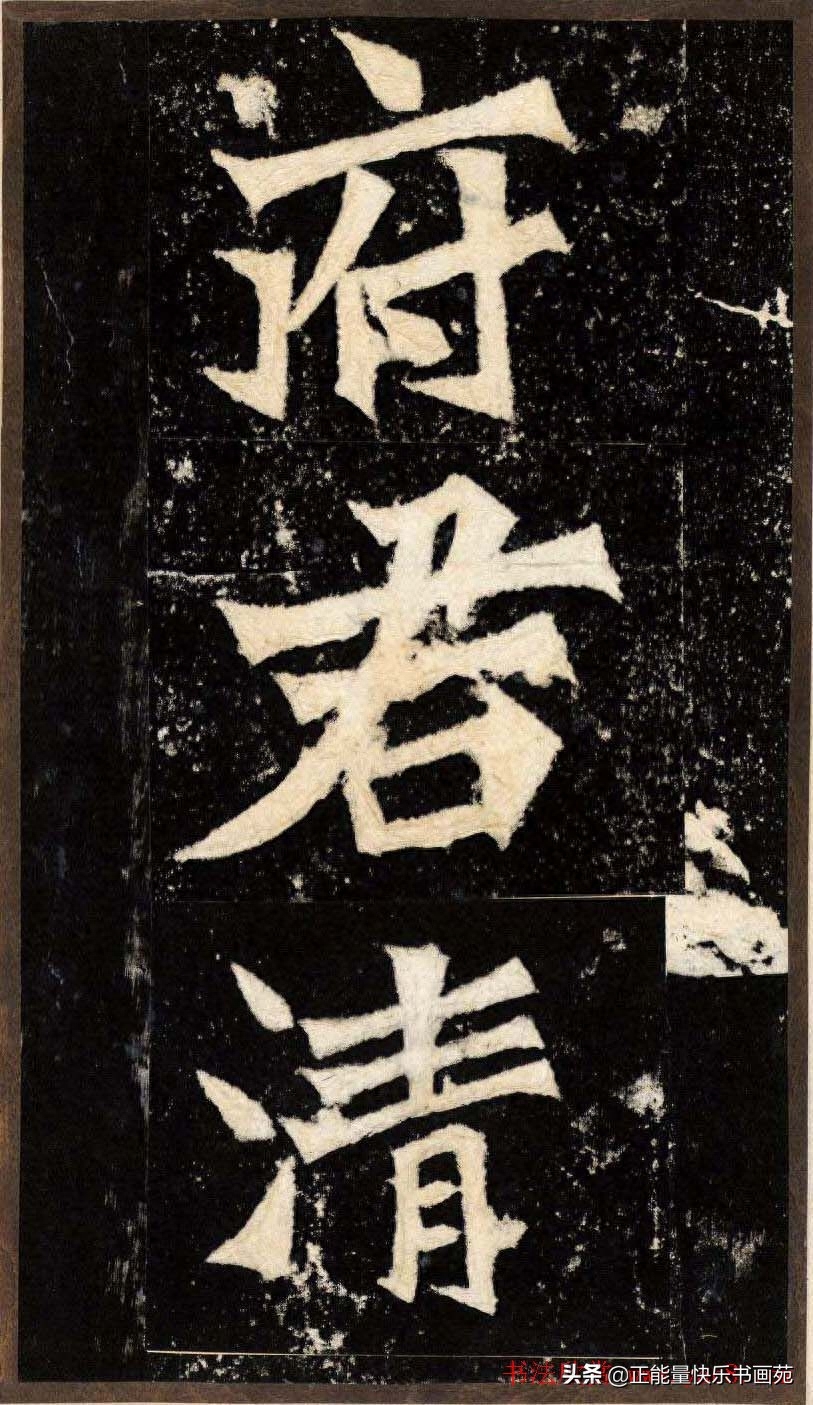 府君清
头条 @正能量快乐书画苑